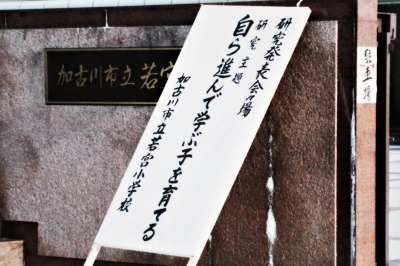 研究発表会々場
研究主題
自ら進んで学ぶ子を育てる
加古川市立若宮小学校
加古川市立若宮
駐車場